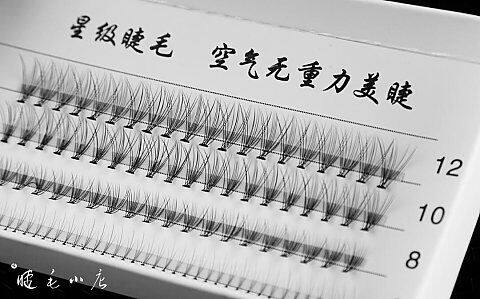 星级睫毛 空气无重力美睫
12
10
8
睫毛小店